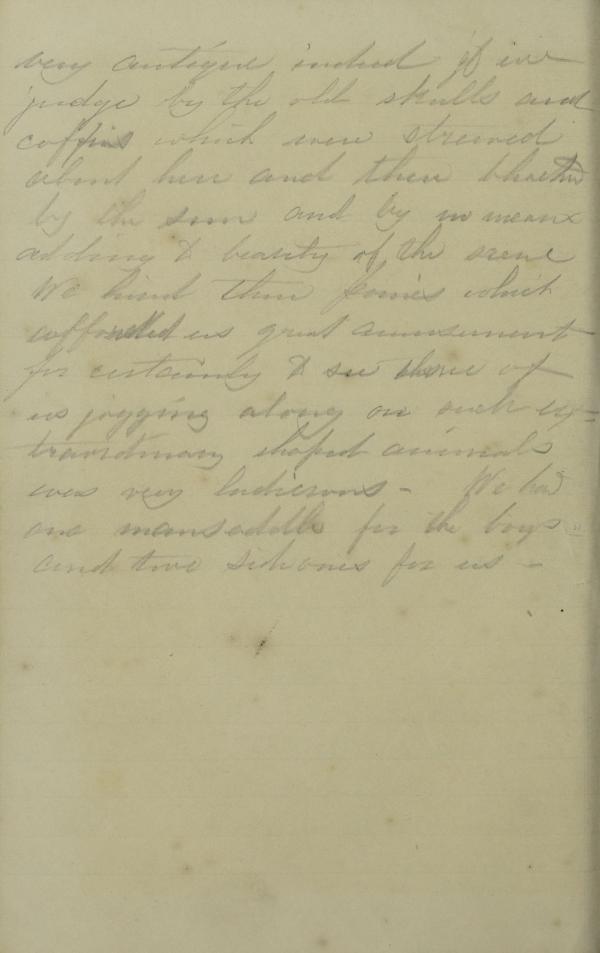 very antique indeed if we
judge by the old skulls and
coffins which were strewed
about here and there bleached
by the sun and by no means
adding to beauty of the scene
We hired three ponies which
afforded us great amusement
for certainly to see three of
us jogging along on such ex=
traordinary shaped animals
was very ludicrous - We had
one mansaddle for the boys
and two side ones for us -